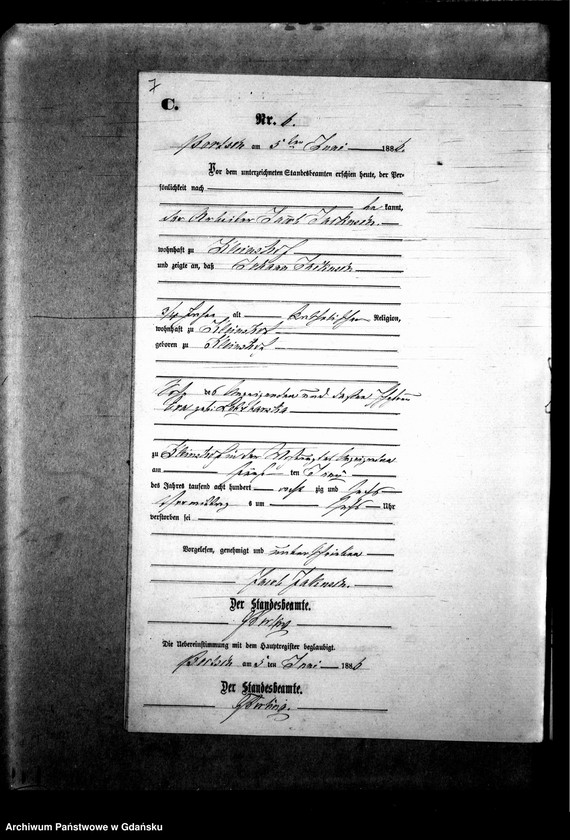 7
C.
Nr. 6.
am 5 ten Juni 1886.
Vor dem unterzeichneten Standesbeamten erschien heute, der Per-
sönlichkeit nach
be kannt,
der Arbeiter Jacob
wohnhaft zu Kleinshof
und zeigte an, daß Johann
3/4 Jahre alt katholischer Religion,
wohnhaft zu Kleinshof
geboren zu Kleinshof
Sohn des Anzeigenden und dessen Ehefrau
geb.
zu Kleinshof in der Wohnung des Anzeigenden
am fünf ten Juni
des Jahres tausend acht hundert acht zig und sechs
Vormittag s um sechs Uhr
verstorben sei
Vorgelesen, genehmigt und unterschrieben
Jacob
Der Standesbeamte.
Die Uebereinstimmung mit dem Hauptregister beglaubigt.
am 5 ten Juni 1886
Der Standesbeamte.
Archiwum Państwowe w Gdańsku